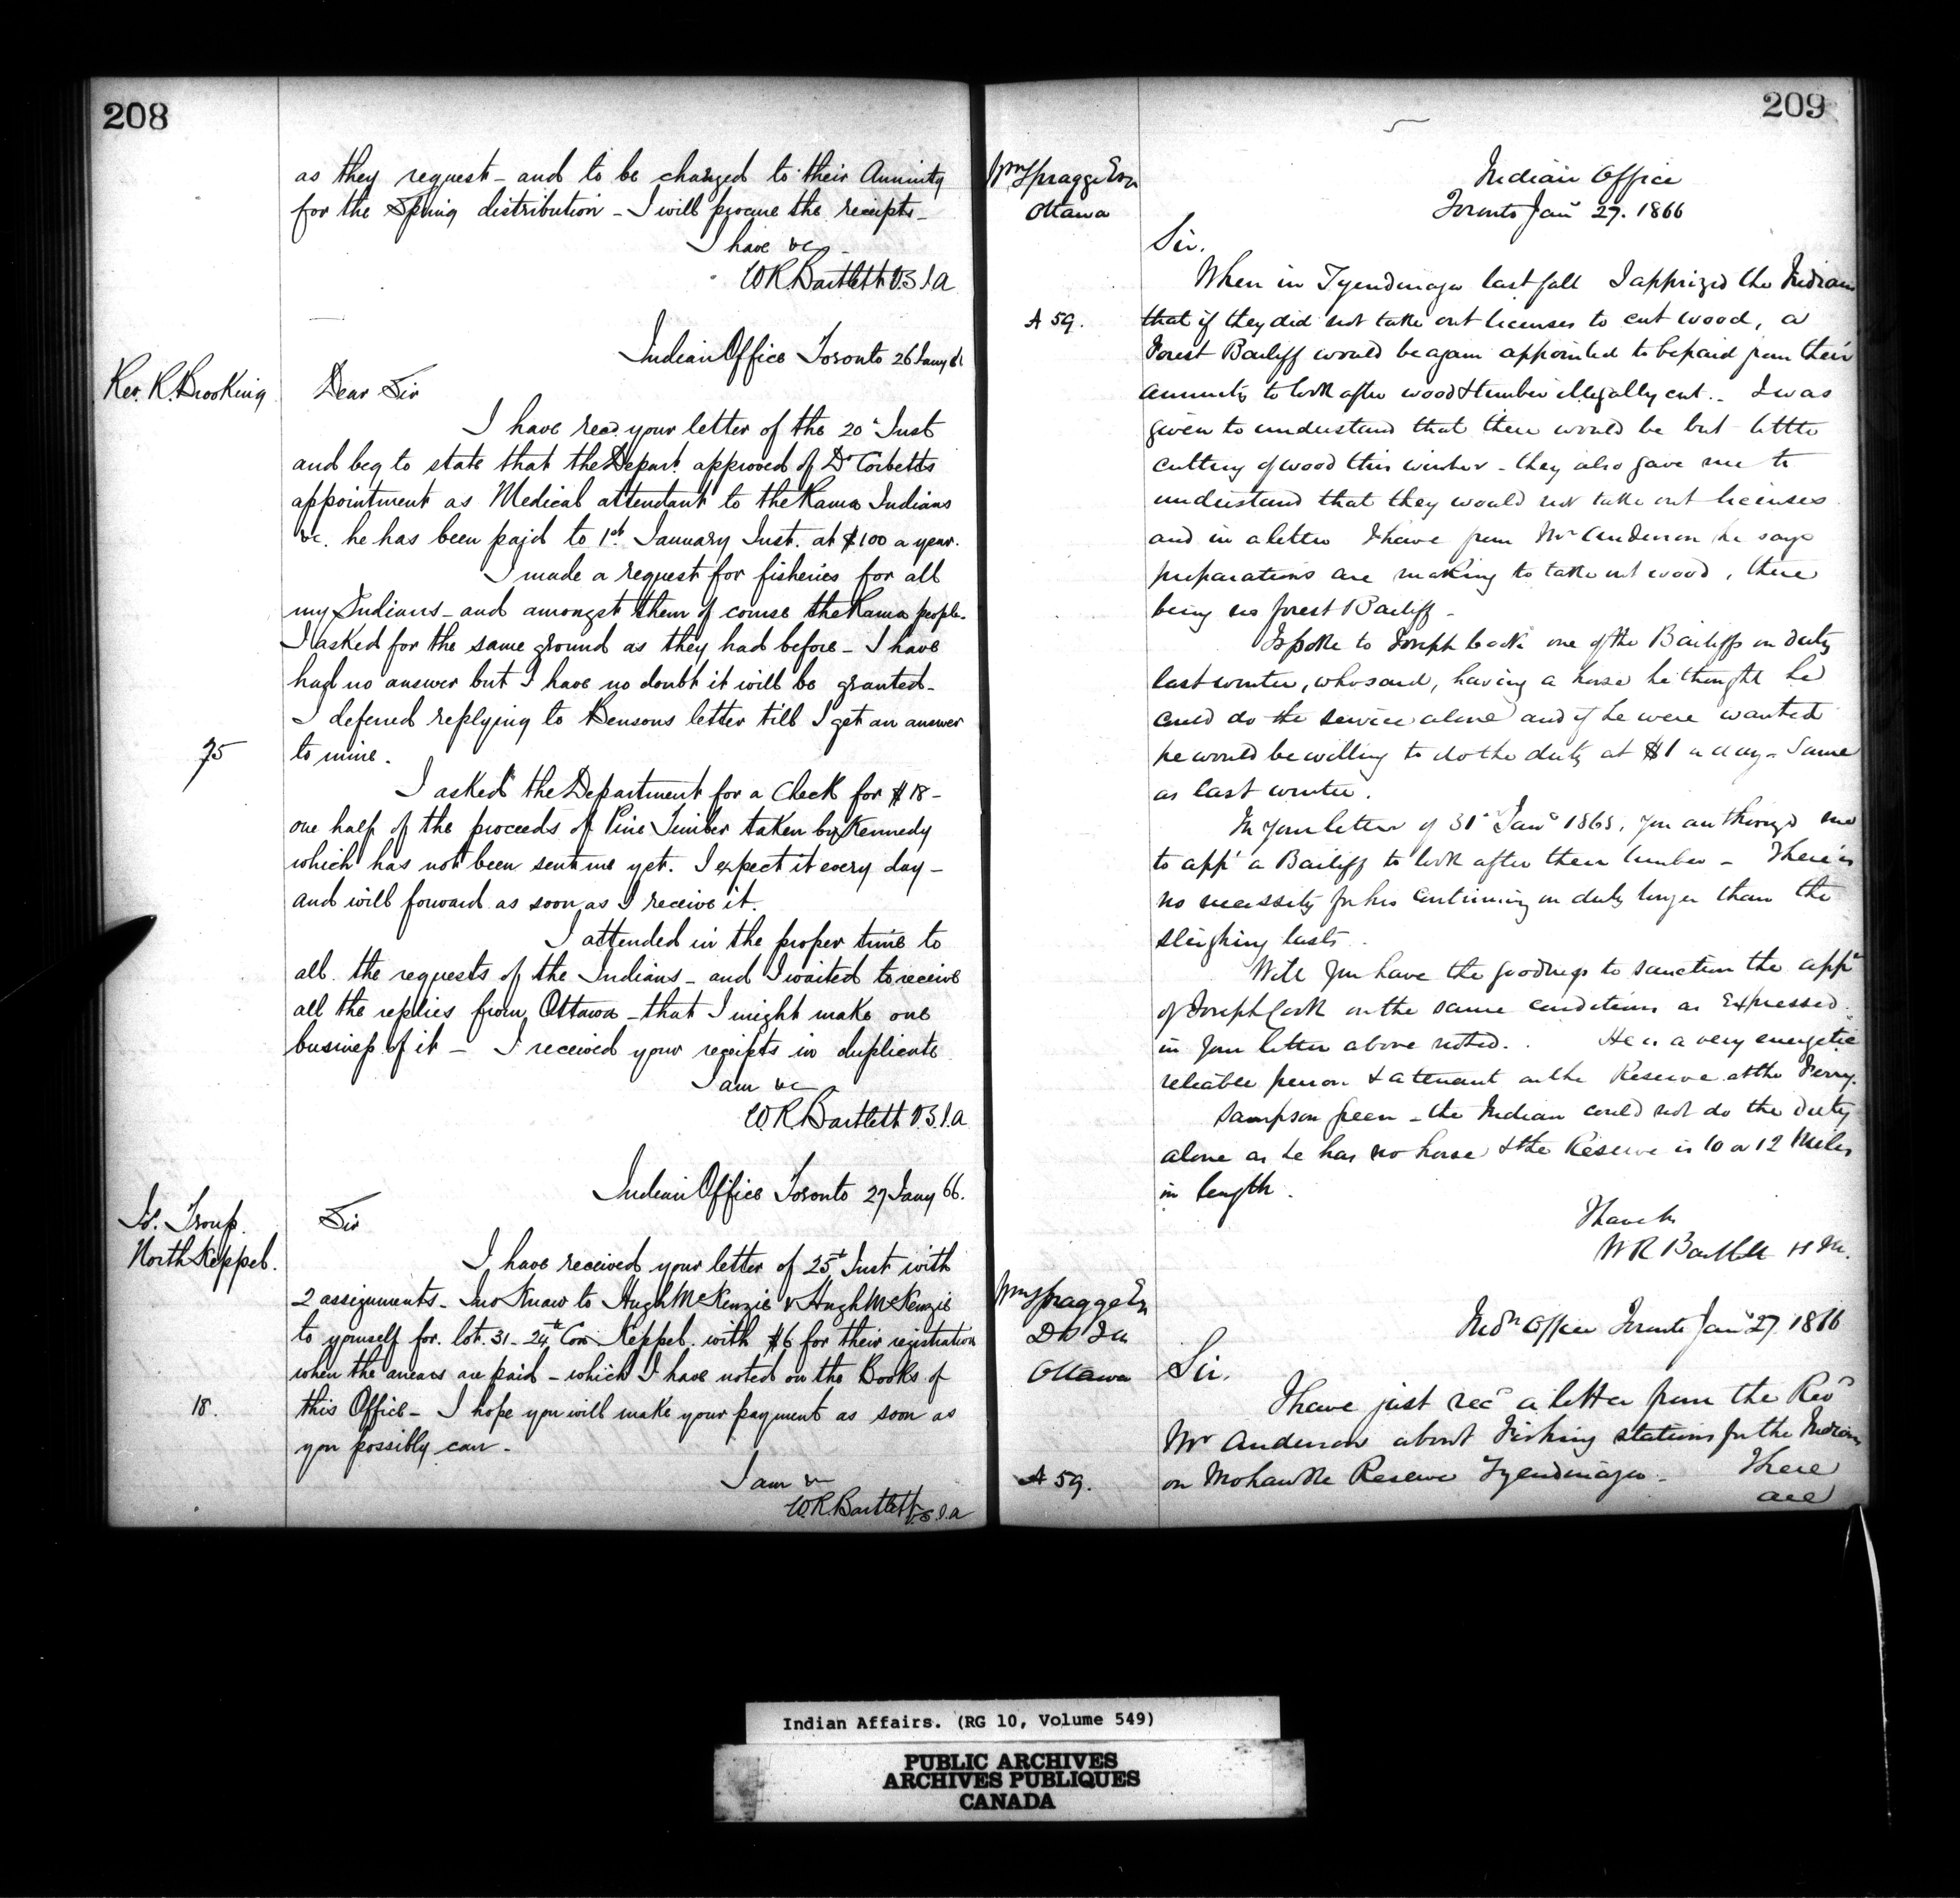 208
as they request - and to be charged to their Annuity
for the Spring distribution - I will procure the receipts -
I have &c -
W R Bartlett V.S.I.A
Indian Office Toronto 26 Jany 66
Rev. R. Brooking
Dear Sir
I have recd. your letter of the 20th Inst
and beg to state that the Depart. approved of Dr Corbetts
appointment as Medical attendant to the Rama Indians
&c. he has been paid to 1st January Inst. at $100 a year.
I made a request for fisheries for all
my Indians - and amongst them of course the Rama people.
I asked for the same ground as they had before - I have
had no answer but I have no doubt it will be granted -
I deferred replying to Bensons letter till I get an answer
75
to mine.
I asked the Department for a Check for $18 -
one half of the proceeds of Pine Timber taken by Kennedy
which has not been sent me yet. I expect it every day -
and will forward as soon as I receive it.
I attended in the proper time to
all the requests of the Indians - and I waited to receive
all the replies from Ottawa - that I might make one
business of it - I received your receipts in duplicate
I am &c
W.R. Bartlett V.S.I.A
Indian Office Toronto 27 Jany 66.
Troup
North Keppel.
Sir
I have received your letter of 25th Inst with
2 assignments - Jno to Hugh McKenzie & Hugh McKenzie
to yourself for lot. 31 - 24th Con Keppel with $6 for their registration
when the arrears are paid - which I have noted on the Books of
18.
this Office - I hope you will make your payment as soon as
you possibly can -
I am &
W.R. Bartlett V.S.I.A
209
Wm Spragge Esqr
Ottawa
Indian Office
Toronto Jany 27. 1866
Sir.
When in Tyendinaga last fall I apprized the Indians
A 59.
that if they did not take out licenses to cut wood, a
Forest Bailiff would be again appointed to be paid from their
annuity to look after wood & timber illegally cut. - I was
given to understand that there would be but little
cutting of wood this winter - they also gave me to
understand that they would not take out licenses
and in a letter I have from Mr Anderson he says
preparations are making to take out wood, there
being no forest Bailiff -
I spoke to Joseph Cook one of the Bailiffs on duty
last winter, who said, having a horse he thought he
could do the service alone and if he were wanted
he would be willing to do the duty at $1 a day - Same
as last winter.
In your letter of 31st Jany 1865, you authorized me
to appt a Bailiff to look after their timber - There is
no necessity for his continuing on duty longer than the
sleighing lasts.
Will you have the goodness to sanction the appt
of Joseph Cook on the same conditions as Expressed
in your letter above noted. He is a very energetic
reliable person & a tenant on the Reserve at the Ferry.
Sampson Green - the Indian could not do the duty
alone as he has no horse & the Reserve is 10 or 12 Miles
in length.
I have &c
W R Bartlett
Wm Spragge Esq
Ottawa
Indn Office Toronto Jany 27. 1866
Sir.
I have just recd a letter from the Revd
Mr Anderson about Fishing stations for the Indians
A 59.
on Mohawk Reserve Tyendinaga - There
are
Indian Affairs. (RG 10, Volume 549)
PUBLIC ARCHIVES
ARCHIVES PUBLIQUES
CANADA